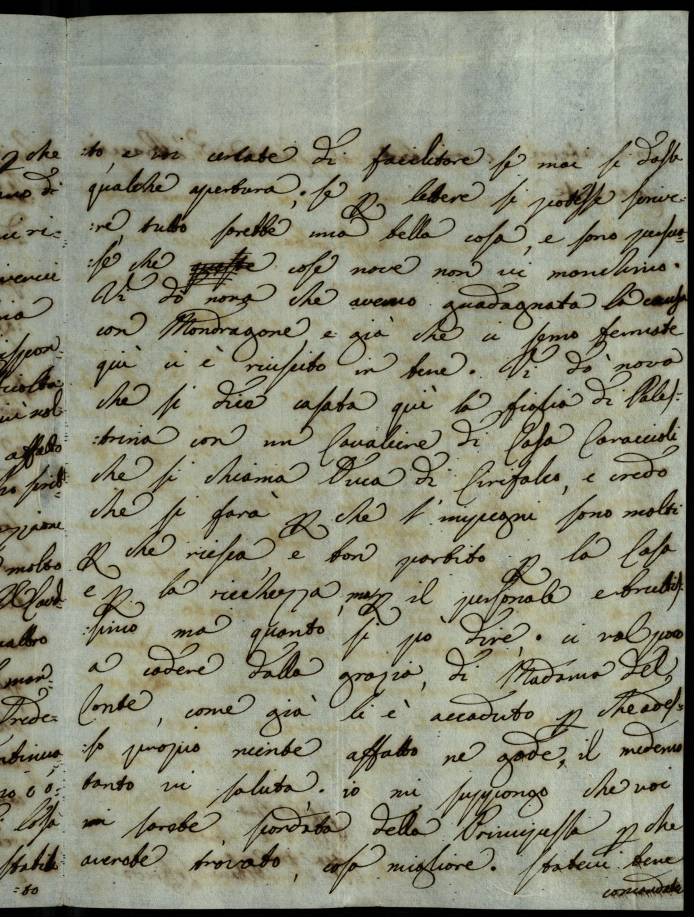 :to, e voi cercate di facilitare se mai si dasse
qualche apertura, se p lettere si potesse scrive:
:re, tutto sarebbe una bella cosa, e sono persua:
:se che cose nove non vi manchino.
Vi dò nova che avemo guadagnata la causa
con Mondragone e già che ci semo fermate
quì ci è riuscito in bene. Vi dò nova
che si dice casata quì la figlia di Pales:
:trina con un Cavaliere di Casa Caraccioli
che si chiama Duca di Girifalco, e credo
che si farà p che l'impegni sono molti
p che riesca, e bon partito p la Casa
e p la ricchezza, ma p il personale e bruttis:
:simo ma quanto si pò dire. ci val poco
a cadere dalla grazia, di Madama del
Conte, come già li è accaduto p che ades:
:so propio niente affatto ne gode, il medemo
tanto vi saluta. io mi suppongo che voi
vi sarete scordata della Principessa p che
averete trovato, cosa migliore. statevi bene
comandate
p che
di
ri:
:to